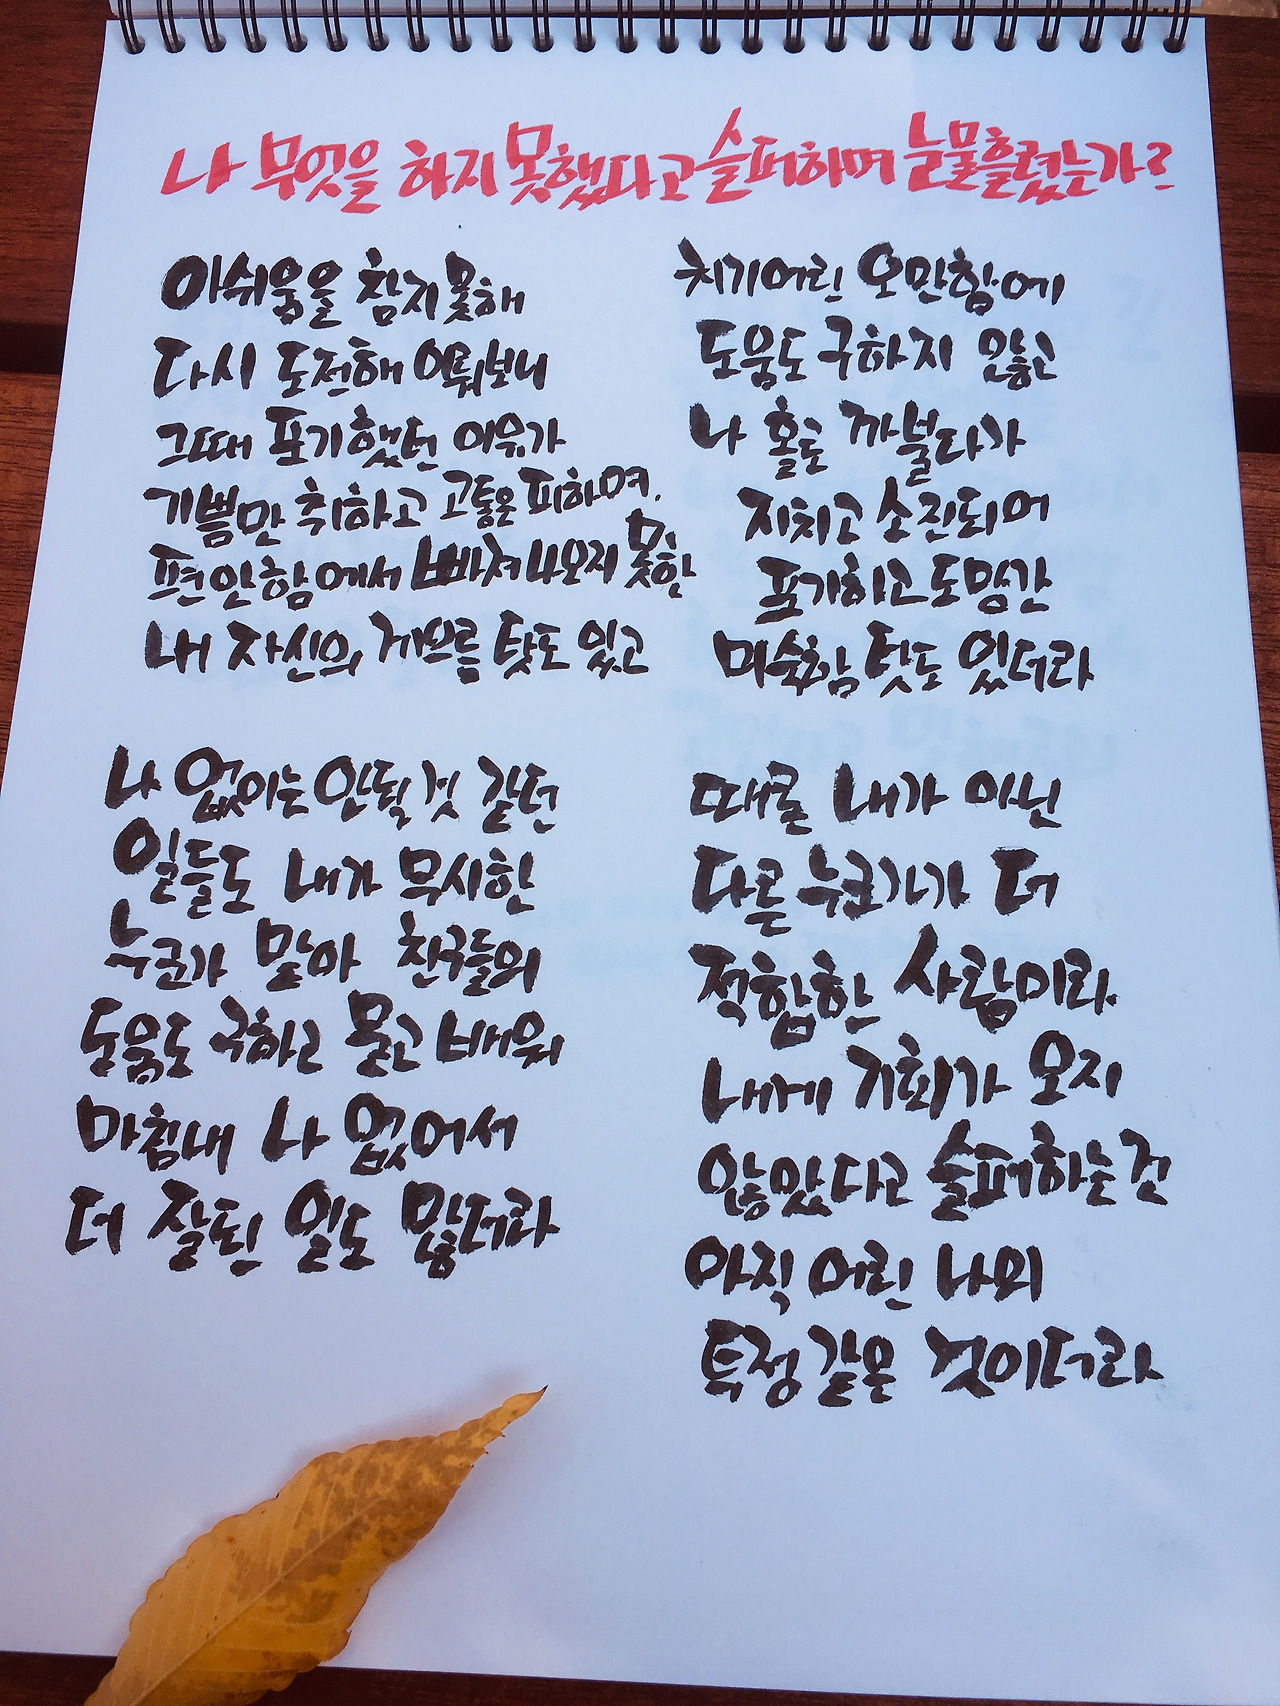 나 무엇을 하지 못했다고 슬퍼하며 눈물흘렸는가?
아쉬움을 참지 못해
다시 도전해 이뤄보니
그때 포기했던 이유가
기쁨만 취하고 고통은 피하며.
편안함에서 빠져나오지 못한
내 자신의 게으름 탓도 있고
치기어린 오만함에
도움도 구하지 않고
나 홀로 까불다가
지치고 소진되어
포기하고 도망간
미숙함 탓도 있더라
나 없이는 안될 것 같던
일들도 내가 무시한
누군가 맡아 친구들의
도움도 구하고 묻고 배워
마침내 나 없어서
더 잘된 일도 많더라
때론 내가 아닌
다른 누군가가 더
적합한 사람이라
내게 기회가 오지
않았다고 슬퍼하는건
아직 어린 나의
투정 같은 것이더라